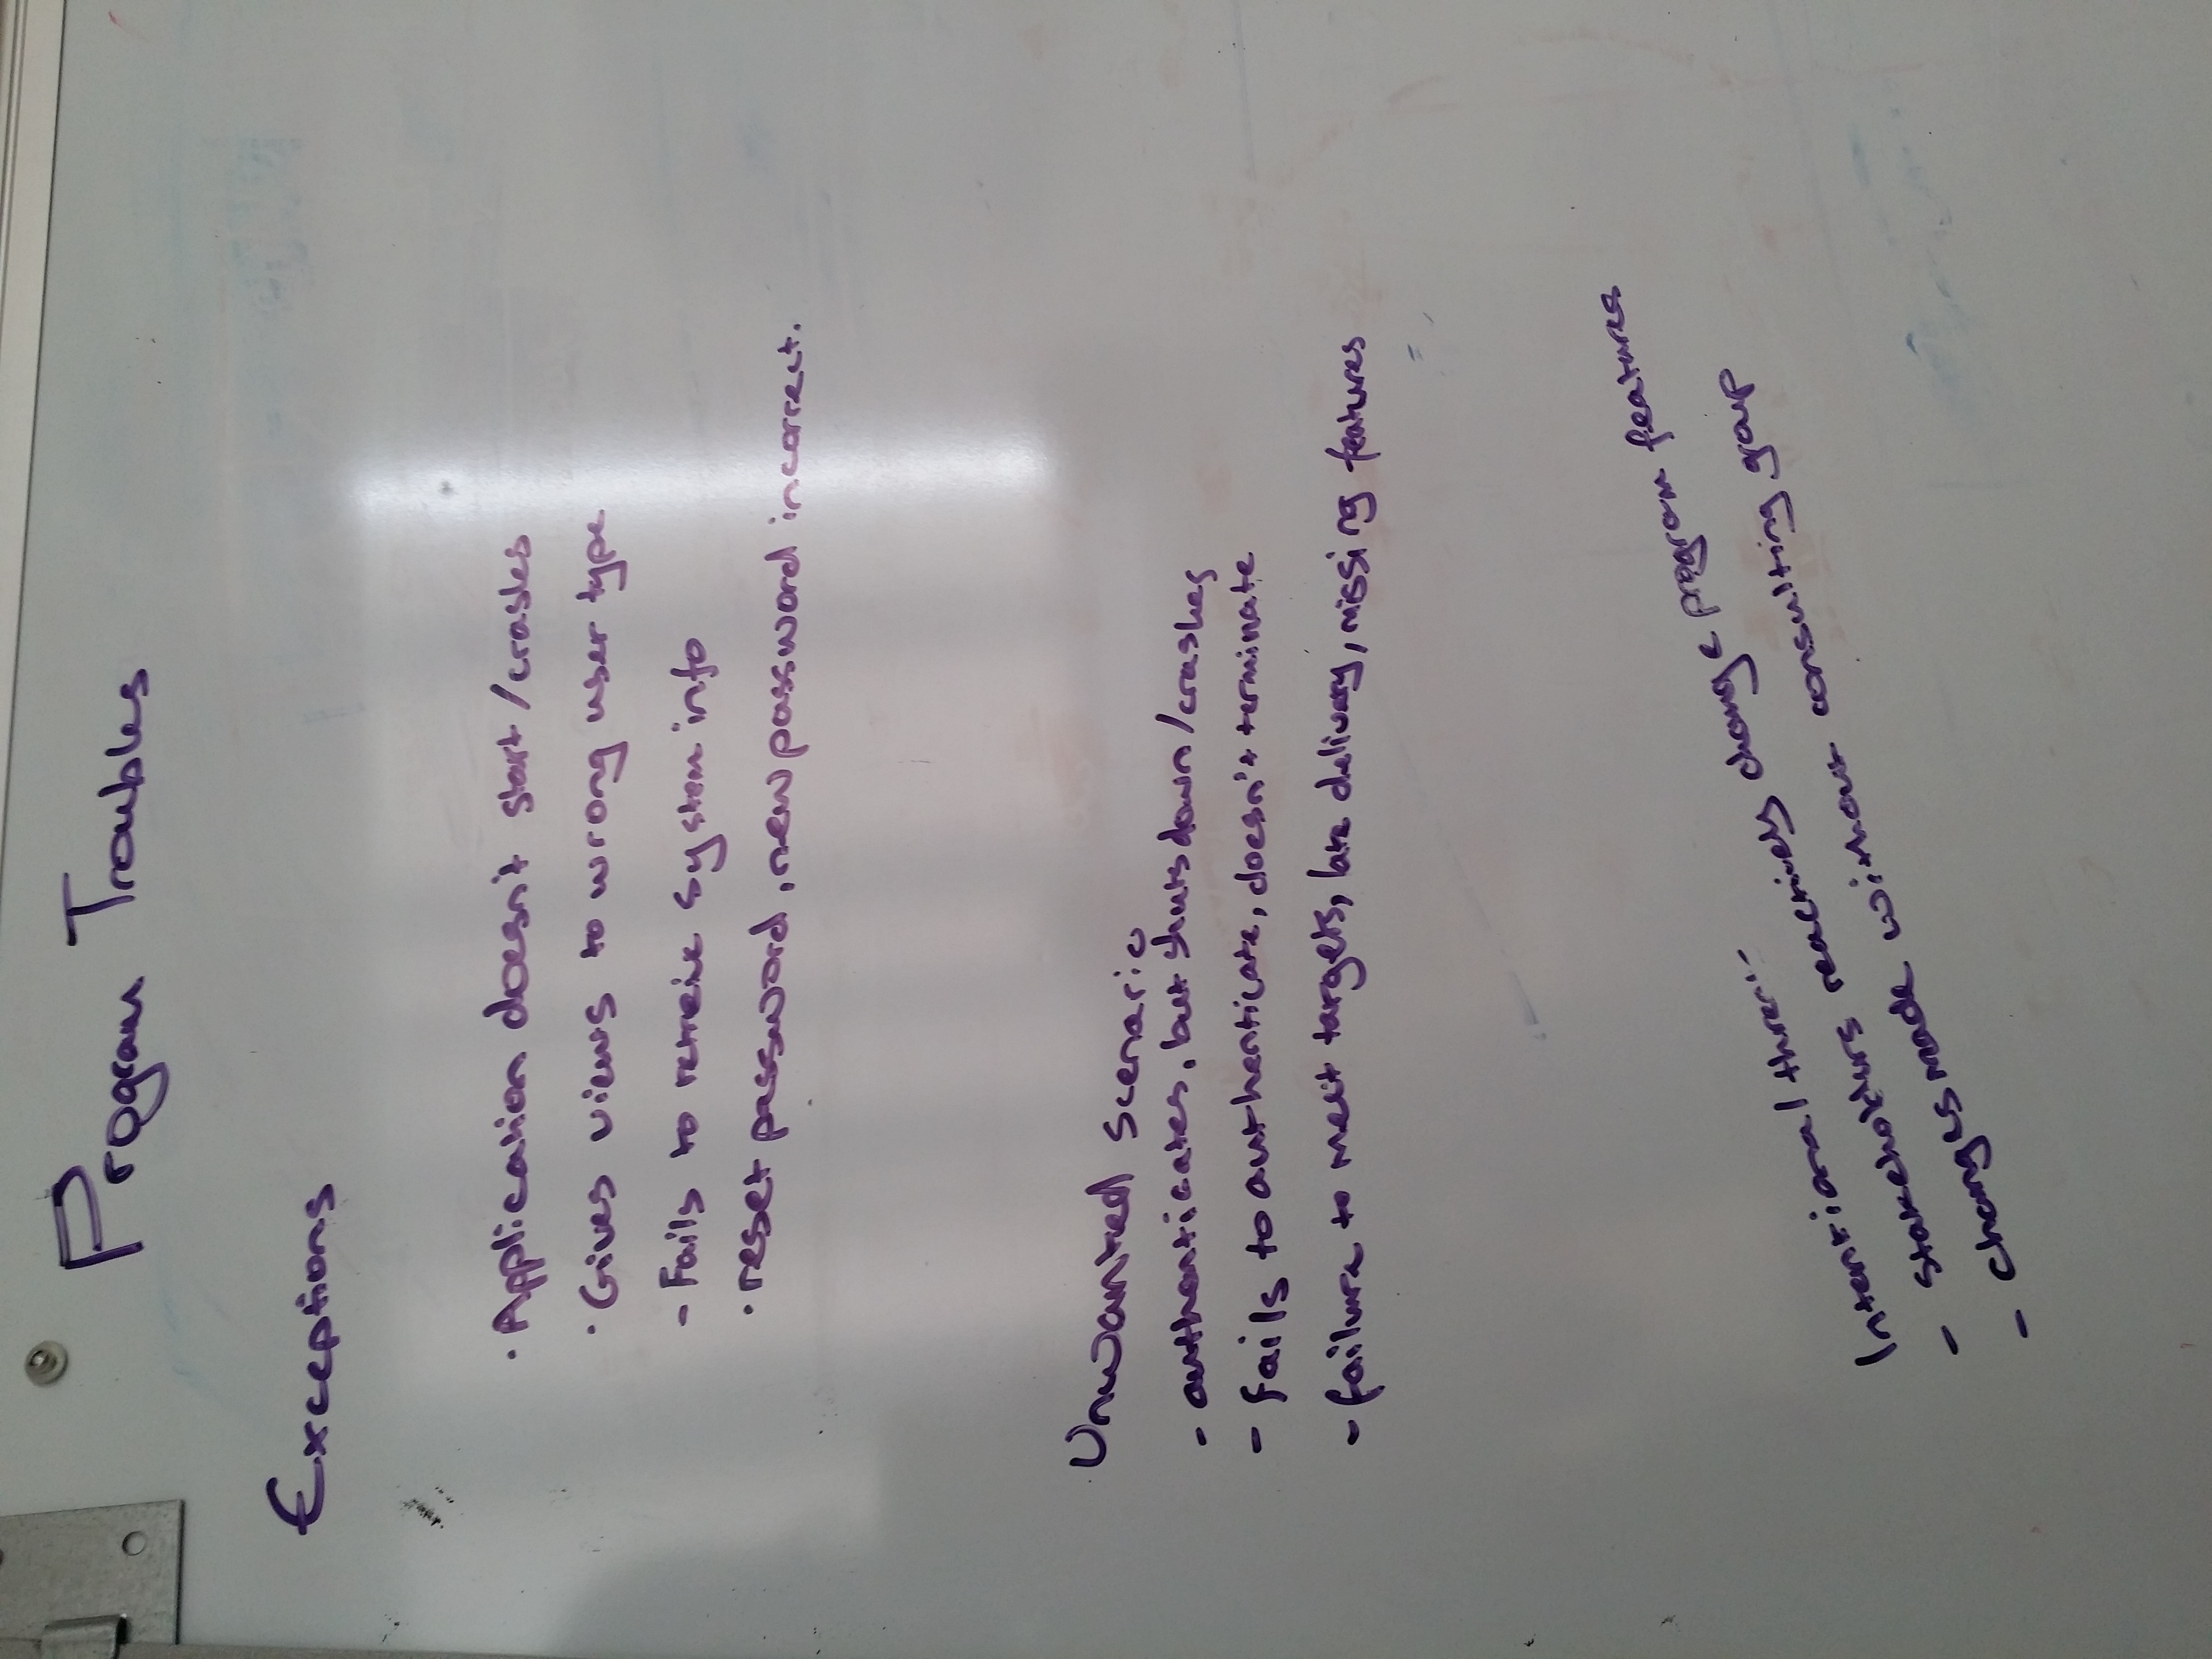 Program Troubles
Exceptions
· Application doesn't start/crashes
· Gives views to wrong user type
- Fails to retreive system info
· reset password, new password incorrect.
Unwanted scenario
- authenticates, but shuts down/crashes
- fails to authenticate, doesn't terminate
- failure to meet targets, late delivery, missing features
Intentional
- Stakeholders reactively change program features
- changes made without consulting group